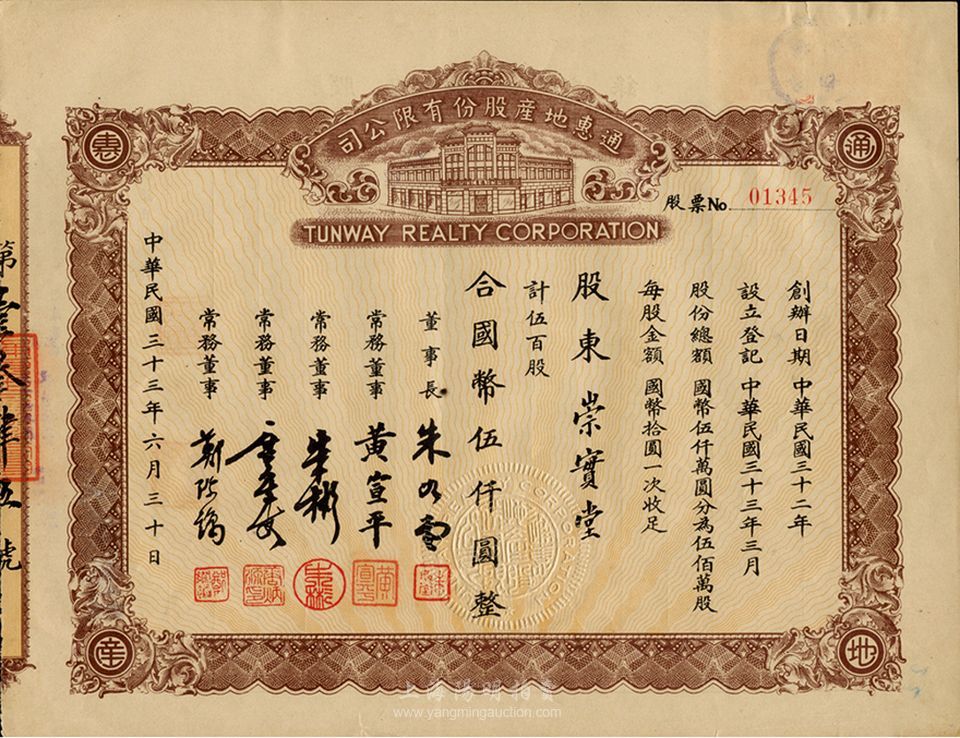 通惠地產股份有限公司
TUNWAY REALTY CORPORATION
通
惠
地
產
股票No. 01345
創辦日期 中華民國三十二年
設立登記 中華民國三十三年三月
股份總額 國幣伍仟萬圓分為伍佰萬股
每股金額 國幣拾圓一次收足
股東 崇實堂
計伍百股
合國幣伍仟圓整
董事長
常務董事 黃宣平
常務董事 朱彬
常務董事
常務董事
中華民國三十三年六月三十日
第壹叁肆伍號
上海陽明拍賣
www.yangmingauction.com